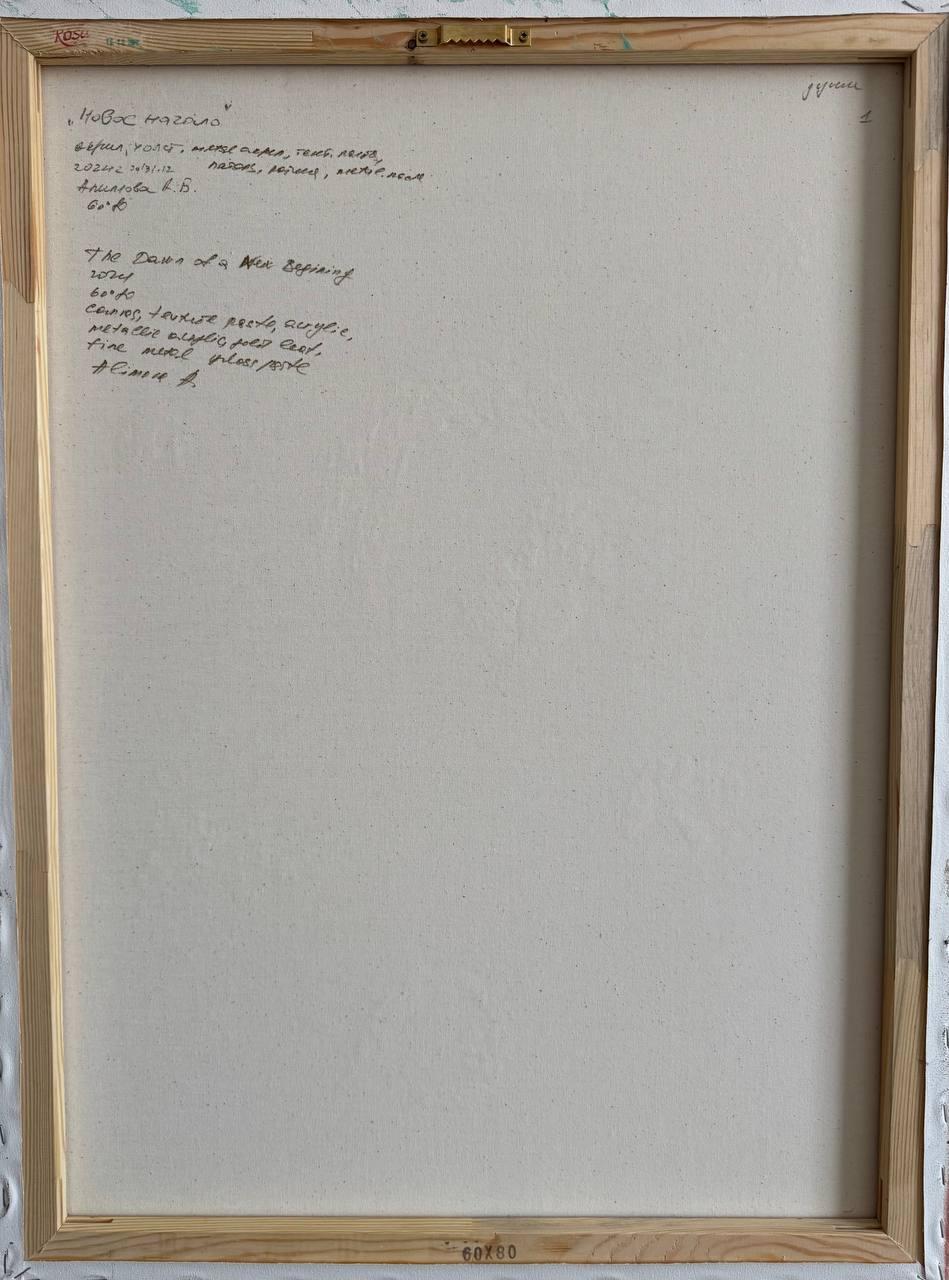 Rosa
1
„Новое начало"
акрил, холст, металл акрил, текст. паста,
2024г 30/31.12
Алимова А.В.
60*80
The Dawn of a New Begining
2024
60*80
canvas, texture paste, acrylic,
metallic acrylic, gold leaf,
fine metal gloss paste
Alimova A.
60X80